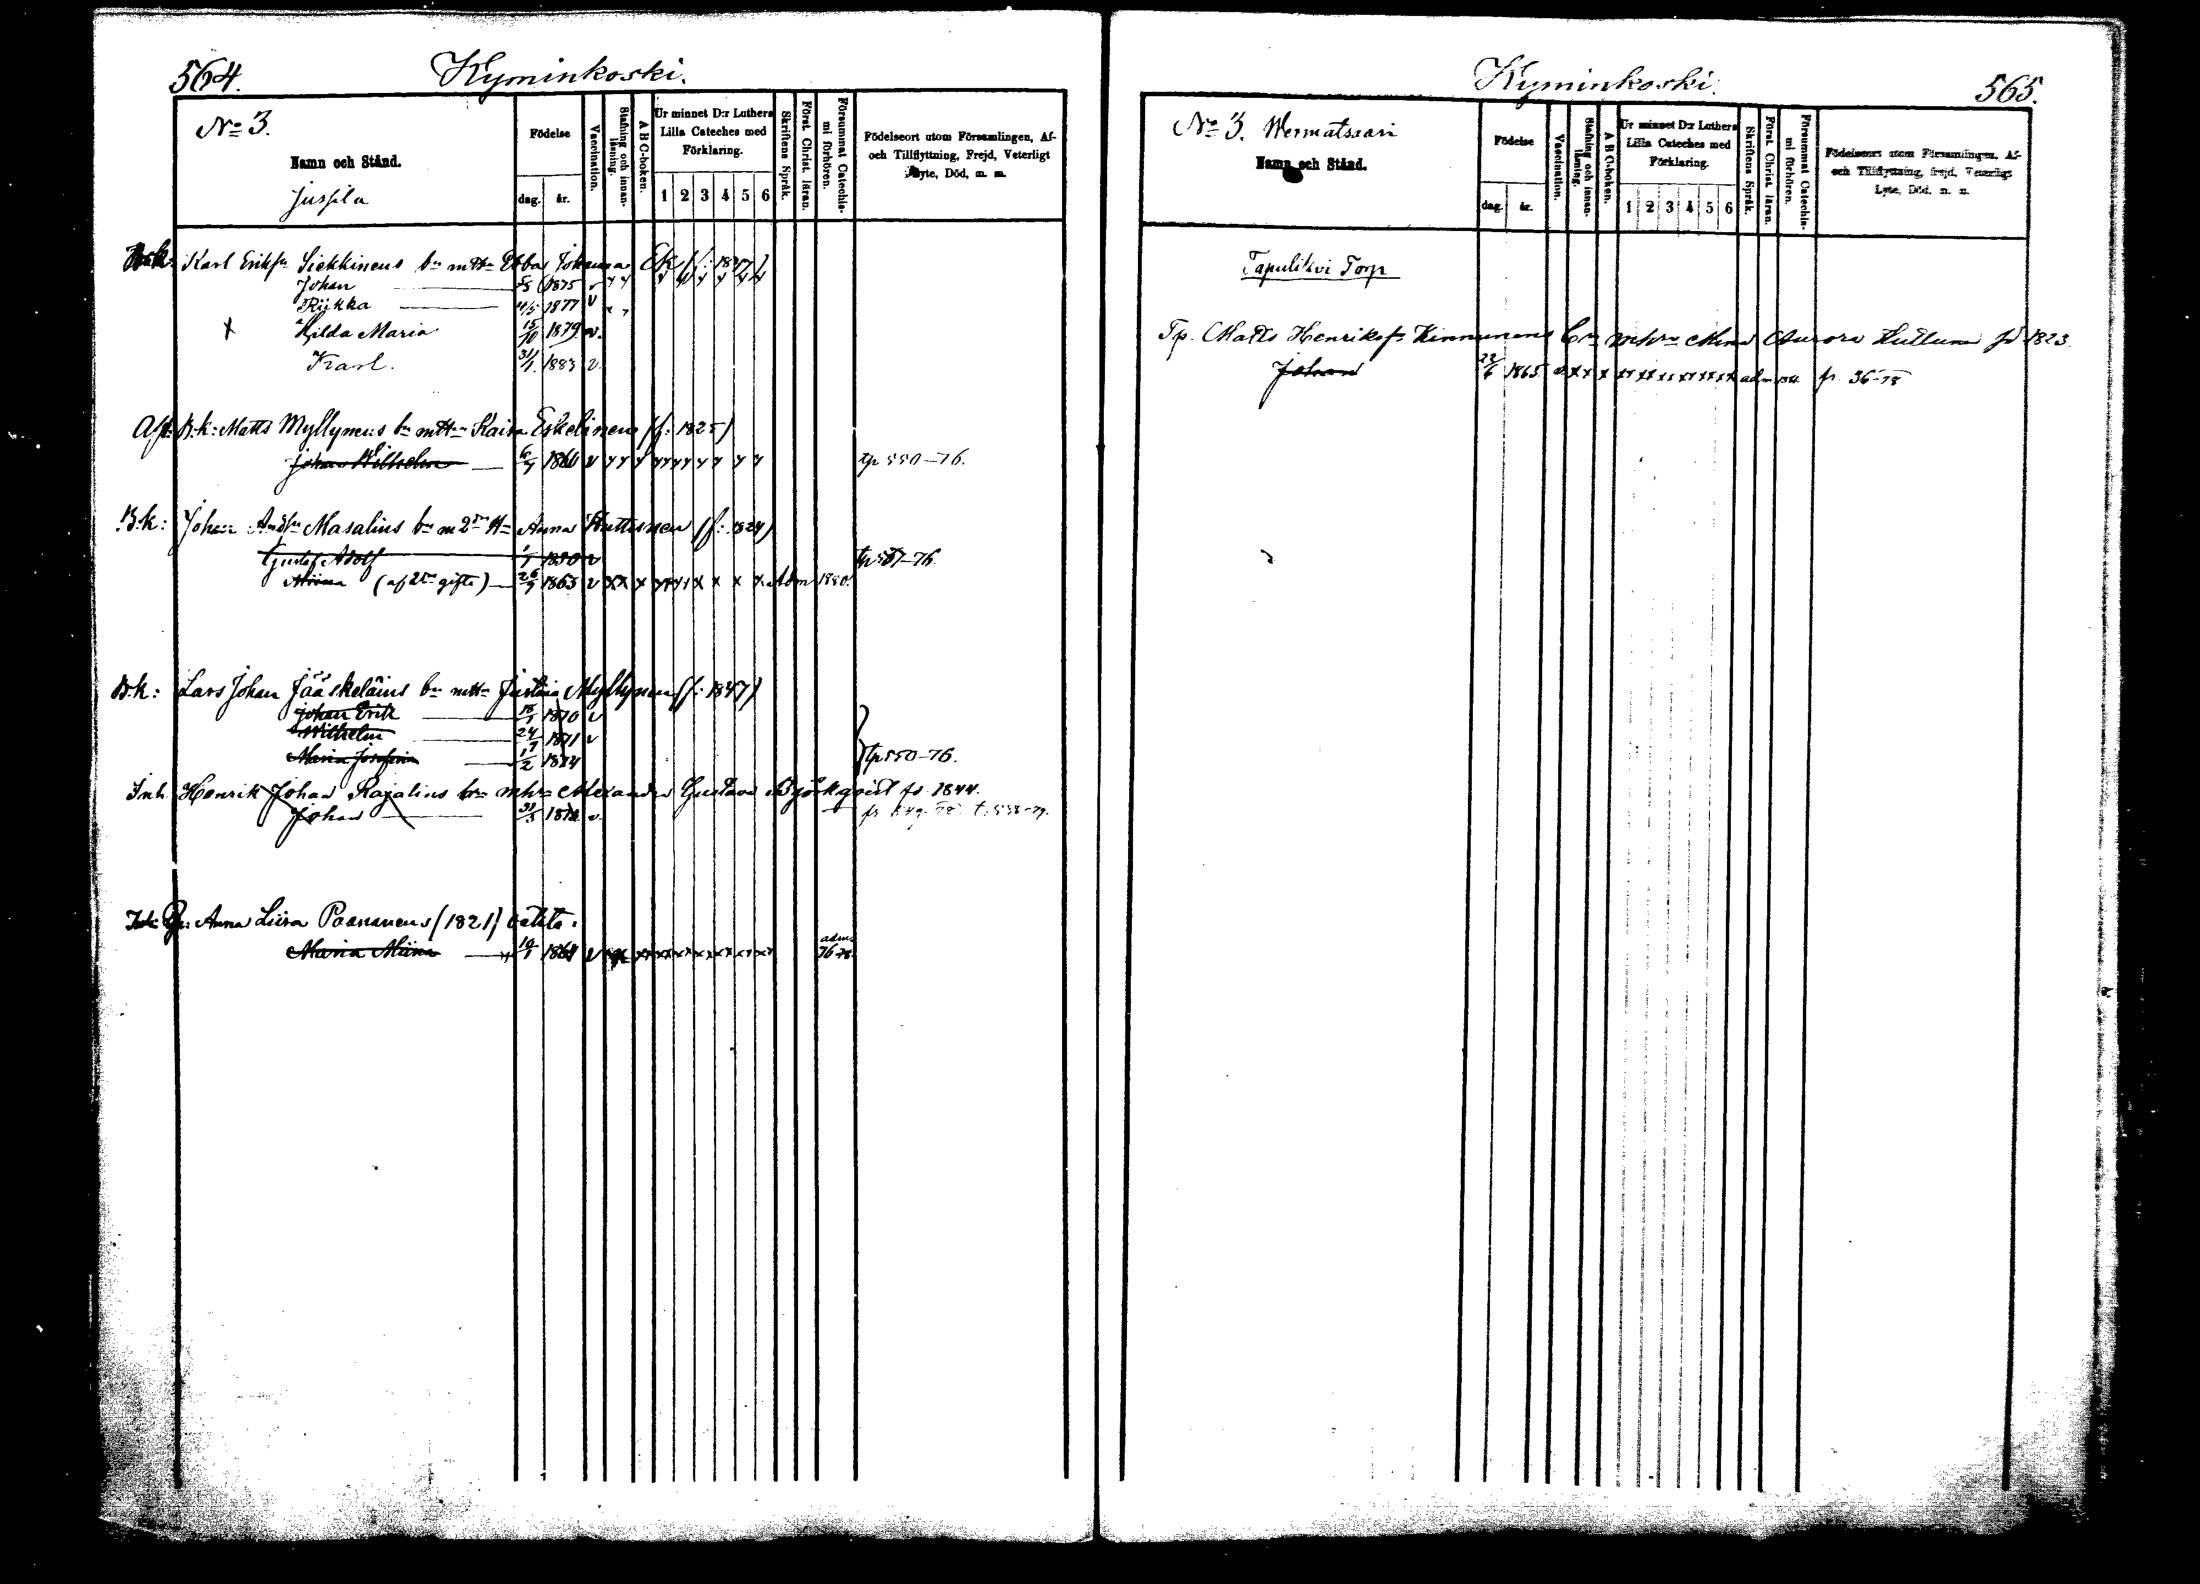 564. Kyminkoski.
No 3.
Namn och Stånd.
Jussila
Födelse
dag. år.
Vaccination.
Stafning och innan-läsning.
A B C-boken.
Ur minnet D:r Luthers Lilla Cateches med Förklaring.
1 2 3 4 5 6
Skriftens Språk.
Först. Christ. läran.
Försummat Catechis-mi förhören.
Födelseort utom Församlingen, Af- och Tillflyttning, Frejd, Veterligt Lyte, Död, m. m.
B:k: Karl Eriksn Siekkinens bn m Hn Ebba Johanna Ek (f: 1847)
Johan 1875 v
Riikka 1877 v
x Hilda Maria 15/10 1879 v.
Karl. 31/1 1883 v
Afl. B.k: Matts Myllynens bn m Hn Kaisa Eskelinen (f: 1825)
Johan Wilhelm 6/7 1860 v tp 550-76.
B.k: Johan Andsn Masalins bn m 2dra Hn Anna Huttunen (f: 1824)
Gustaf Adolf 1850 v tp 507-76
Miina (af 2dra gifte) 26/9 1863 v x x x x x x x Adm 1880.
B.k: Lars Johan Jääskeläins bn m Hn Justina Myllynen (f: 1847)
Johan Erik 18/1 1870 v
Wilhelm 24/1 1871 v
Maria Josefina 17/2 1874 tp 550-76.
Inh. Henrik Johan Rajalins bn m hn Alexandra Gustava Björkqvist fd. 1844.
Johan 31/3 1872 v.
Anna Liisa Paananens (1821) oäkta:
Maria Miina 19/1 1864 v adm. 76
Kyminkoski. 565.
No 3. Wermatsaari
Namn och Stånd.
Födelse
dag. år.
Vaccination.
Stafning och innan-läsning.
A B C-boken.
Ur minnet D:r Luthers Lilla Cateches med Förklaring.
1 2 3 4 5 6
Skriftens Språk.
Först. Christ. läran.
Försummat Catechis-mi förhören.
Födelseort utom Församlingen, Af- och Tillflyttning, frejd, Veterligt Lyte, Död. m. m.
Torp
Tp. Matts Henriksns Kinnunens bn m hn Anna Aurora Huttunen fd 1823.
Johan 22/6 1865 v x x x adm fr. 36-78